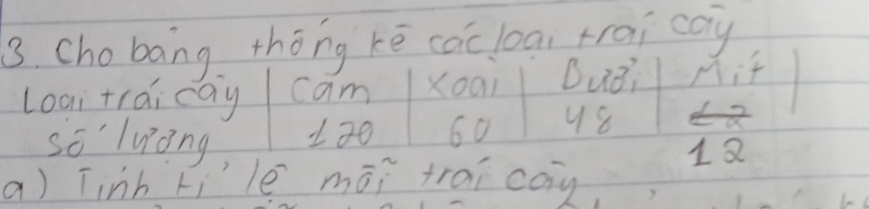 3. Cho bảng thống kê các loại trái cây
Loại trái cây | Cam | Xoài | Bưởi | Mít |
số lượng | 120 | 60 | 48 | 12
a) Tính tỉ lệ mỗi trái cây